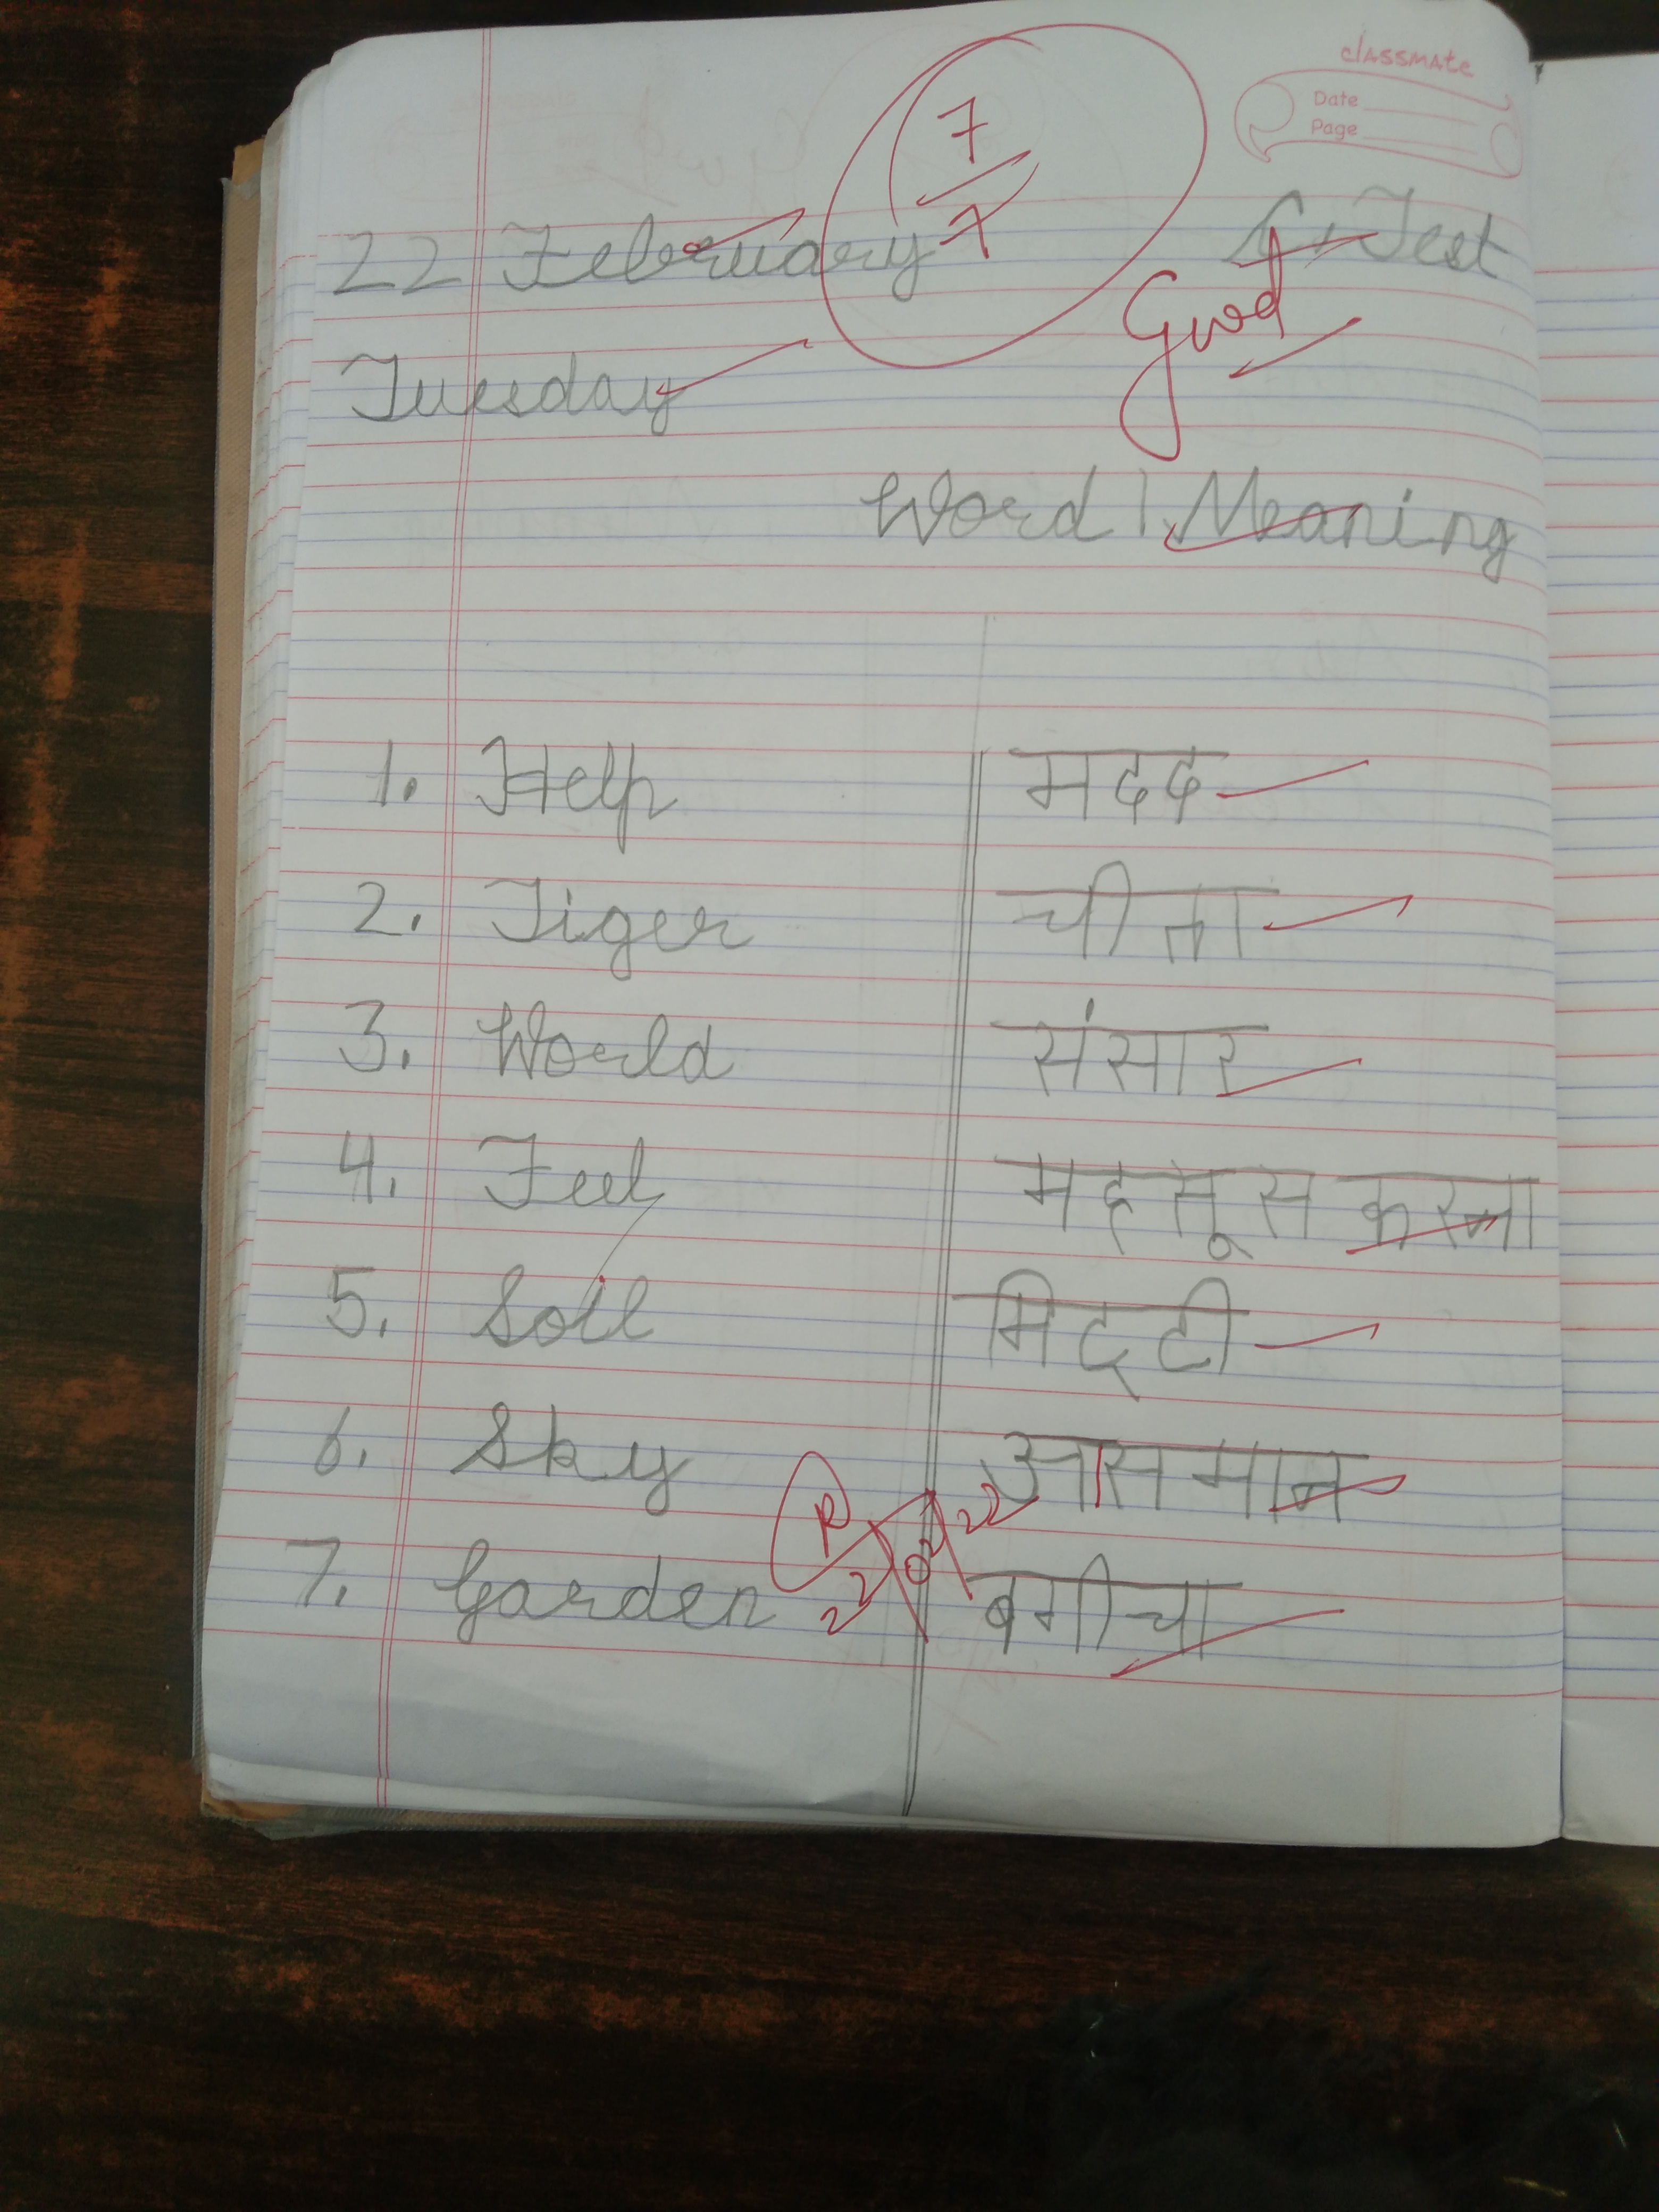 classmate
Date
Page
7/7
22 February C.Test
Good
Tuesday
Word | Meaning
1. Help मदद
2. Tiger चीता
3. World संसार
4. Feel महसूस करना
5. Soil मिट्टी
6. Sky आसमान
7. Garden बगीचा
22 02 22